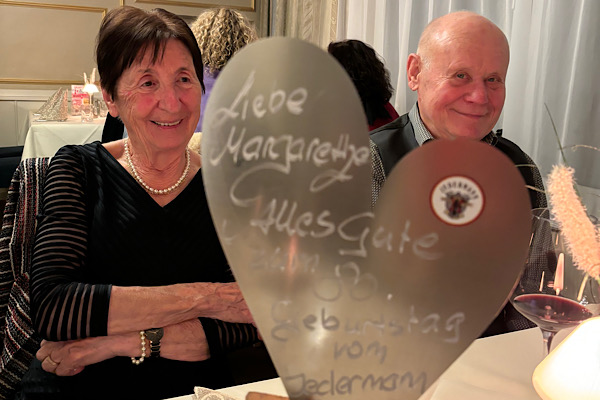 Liebe
Margarethe
JEDERMANN
Alles Gute
zum
Geburtstag
vom
Jedermann